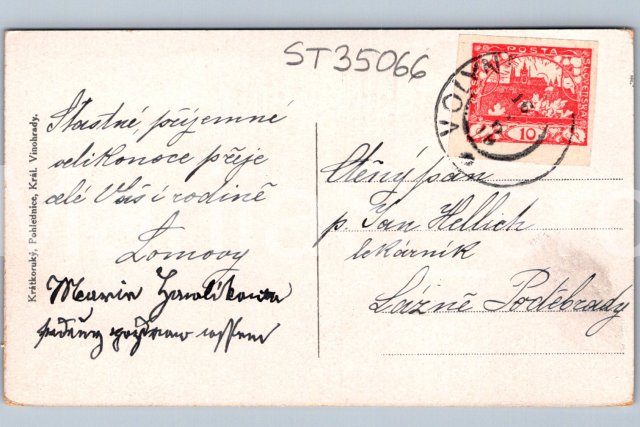 ST35066
POSTA
ČESKOSLOVENSKÁ
10
VOLYNĚ
Šťastné, příjemné
velikonoce přeje
celé Vaší rodině
Lomovy
Marie
srdečný pozdrav všem
Krátkoruký, Pohlednice, Král. Vinohrady.
Ctěný pán
p. Jan Hellich
lekárník
Lázně Poděbrady